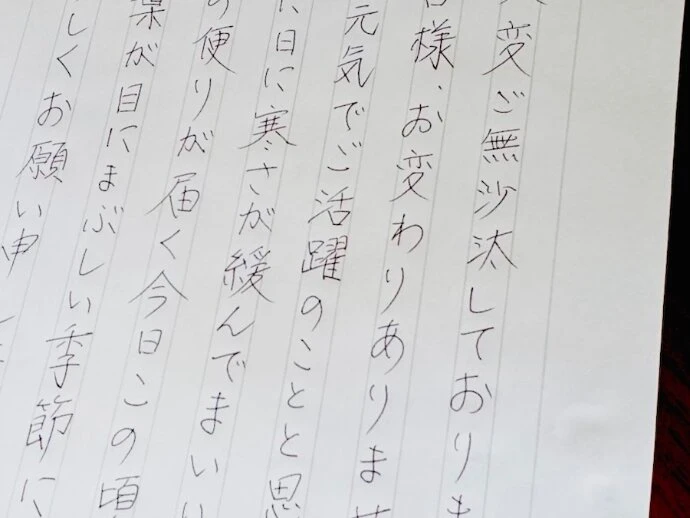 変ご無沙汰しており
様、お変わりありませ
元気でご活躍のことと思
に日に寒さが緩んでまいり
の便りが届く今日この頃
葉が目にまぶしい季節に
しくお願い申